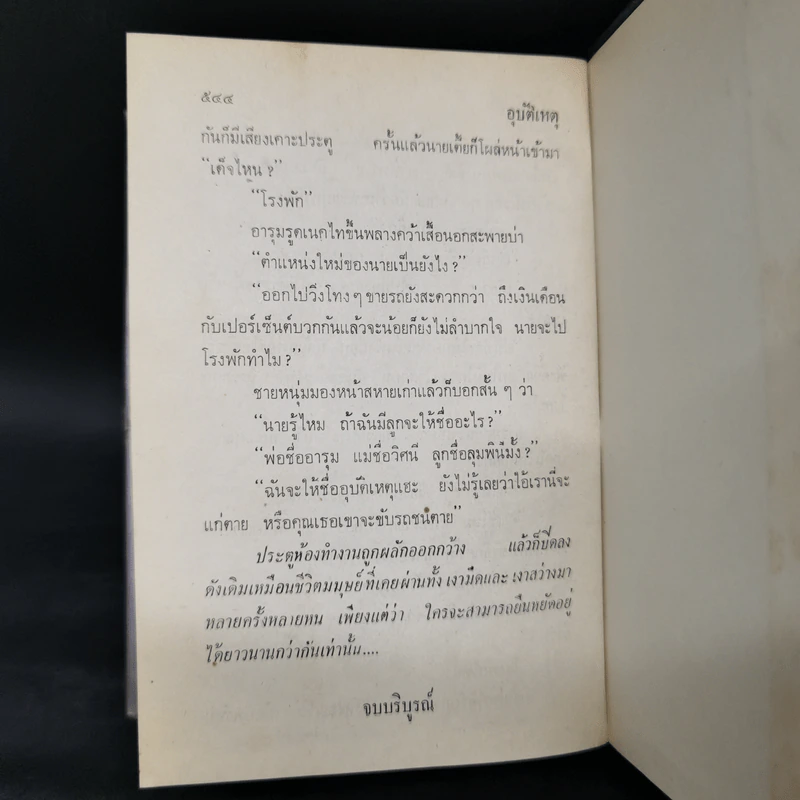 ๕๔๔
อุบัติเหตุ
กันก็มีเสียงเคาะประตู ครั้นแล้วนายเตี้ยก็โผล่หน้าเข้ามา
“เด็จไหน ?”
“โรงพัก”
อารุมรูดเนคไทขึ้นพลางคว้าเสื้อนอกสะพายบ่า
“ตำแหน่งใหม่ของนายเป็นยังไง ?”
“ออกไปวิ่งโทง ๆ ขายรถยังสะดวกกว่า ถึงเงินเดือน
กับเปอร์เซ็นต์บวกกันแล้วจะน้อยก็ยังไม่ลำบากใจ นายจะไป
โรงพักทำไม ?”
ชายหนุ่มมองหน้าสหายเก่าแล้วก็บอกสั้น ๆ ว่า
“นายรู้ไหม ถ้าฉันมีลูกจะให้ชื่ออะไร ?”
“พ่อชื่ออารุม แม่ชื่อวิศนี ลูกชื่อลุมพินีมั้ง ?”
“ฉันจะให้ชื่ออุบัติเหตุแฮะ ยังไม่รู้เลยว่าไอ้เรานี่จะ
แก่ตาย หรือคุณเธอเขาจะขับรถชนตาย”
ประตูห้องทำงานถูกผลักออกกว้าง แล้วก็ปิดลง
ดังเดิมเหมือนชีวิตมนุษย์ที่เคยผ่านทั้ง เงามืดและ เงาสว่างมา
หลายครั้งหลายหน เพียงแต่ว่า ใครจะสามารถยืนหยัดอยู่
ได้ยาวนานกว่ากันเท่านั้น....
จบบริบูรณ์